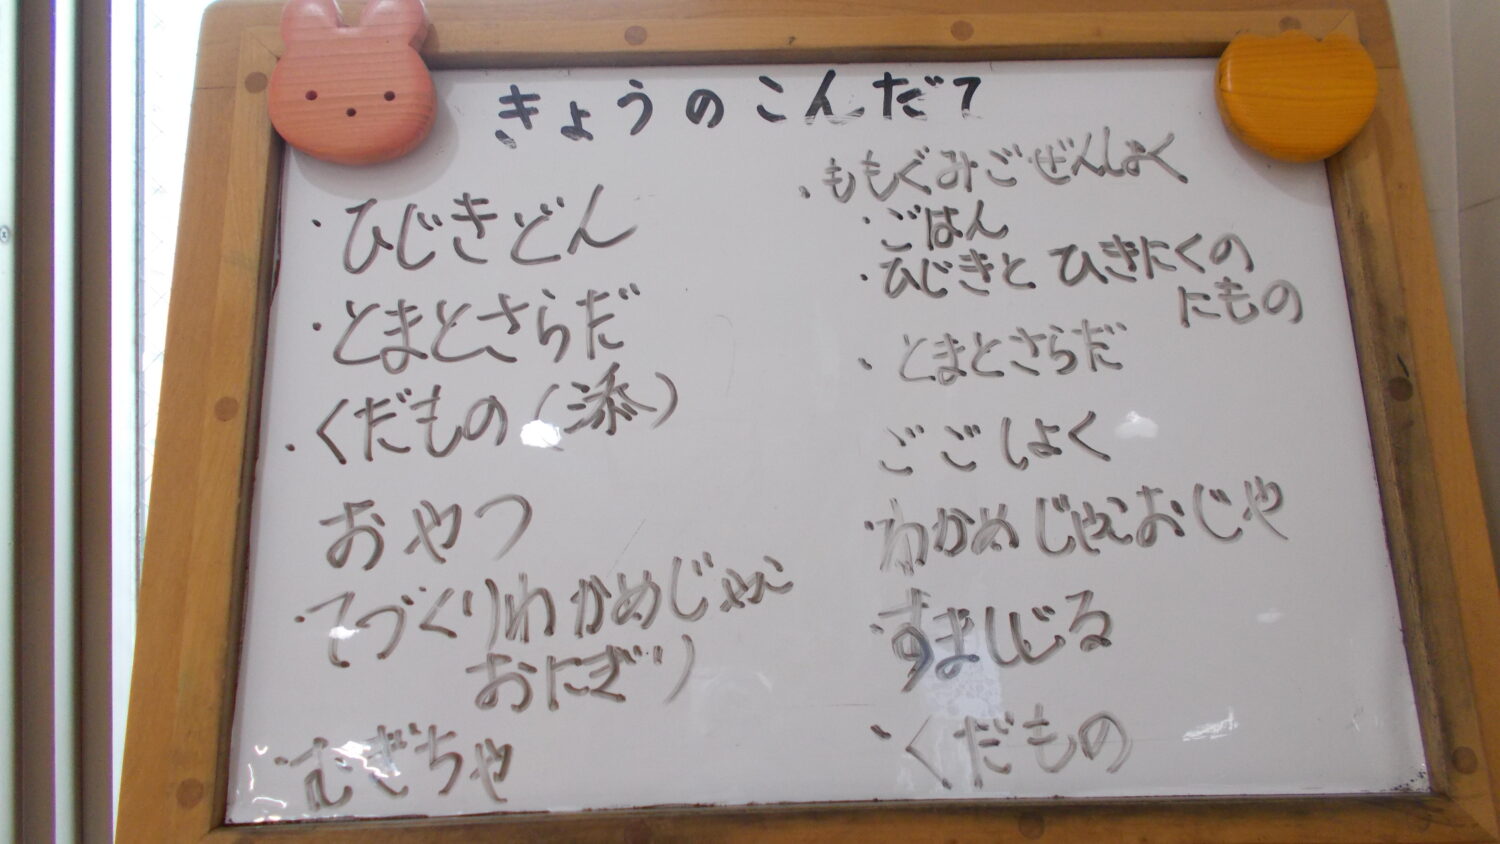 きょうのこんだて
・ひじきどん
・とまとさらだ
・くだもの(添)
おやつ
・てづくりわかめじゃこ
おにぎり
・むぎちゃ
・ももぐみごぜんしょく
・ごはん
・ひじきと ひきにくの
にもの
・とまとさらだ
ごごしょく
・わかめじゃこおじや
・すましじる
・くだもの